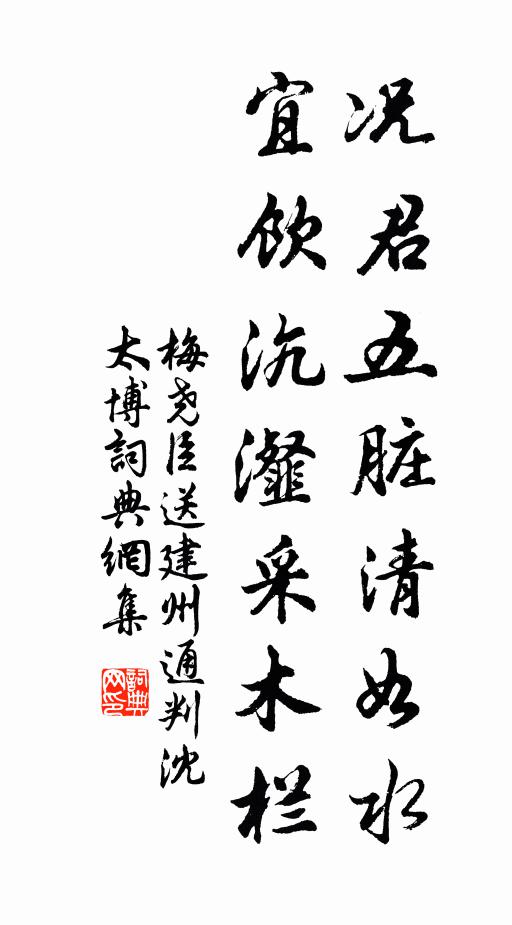 况君五脏清如水
宜饮沆瀣采木栏
梅尧臣送建州通判沈
太博詞典網集
詞典网印